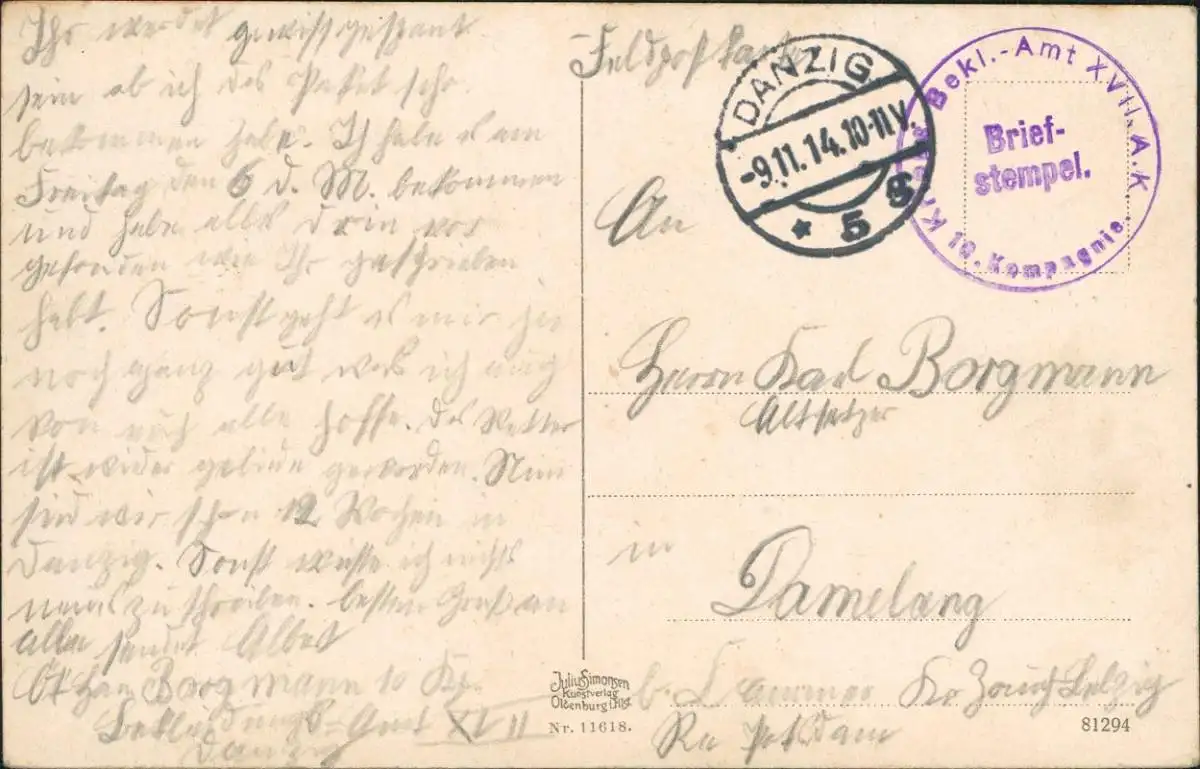 Ihr werdet gewiss gespant
sein ob ich das Packet schon
bekommen habe. Ich habe es am
Freitag den 6 d. M. bekommen
und habe alles drin vor
gefonden wie Ihr geschrieben
habt. Sonst geht es mir hir
noch ganz gut was ich auch
von euch alle hoffe. Das Wetter
ist wider gelinde geworden. Nun
sind wir schon 12 Wochen in
Danzig. Sonst wüste ich nichts
neues zu schreiben. besten Gruß an
alle sendet Albert
Borgmann 10 Kp.
Bekleidungs-Amt XVII
Danzig
Feldpostkarte
DANZIG
-9.11.14.10-11V.
* 5 g
Bekl.-Amt XVII. A.K.
Brief-
stempel.
10. Kompagnie.
An
Herrn Karl Borgmann
Altsitzer
in
Damelang
b. Kr Zauch Belzig
Potsdam
Julius Simonsen
Kunstverlag
Oldenburg i. Hlst.
Nr. 11618.
81294